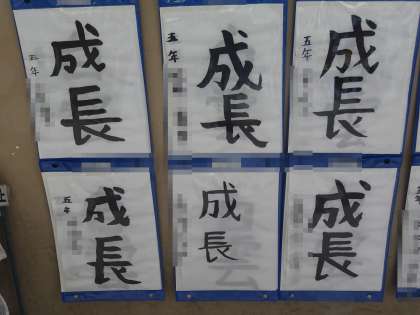 成長
五年
成長
五年
成長
五年
成長
五年
成長
成長